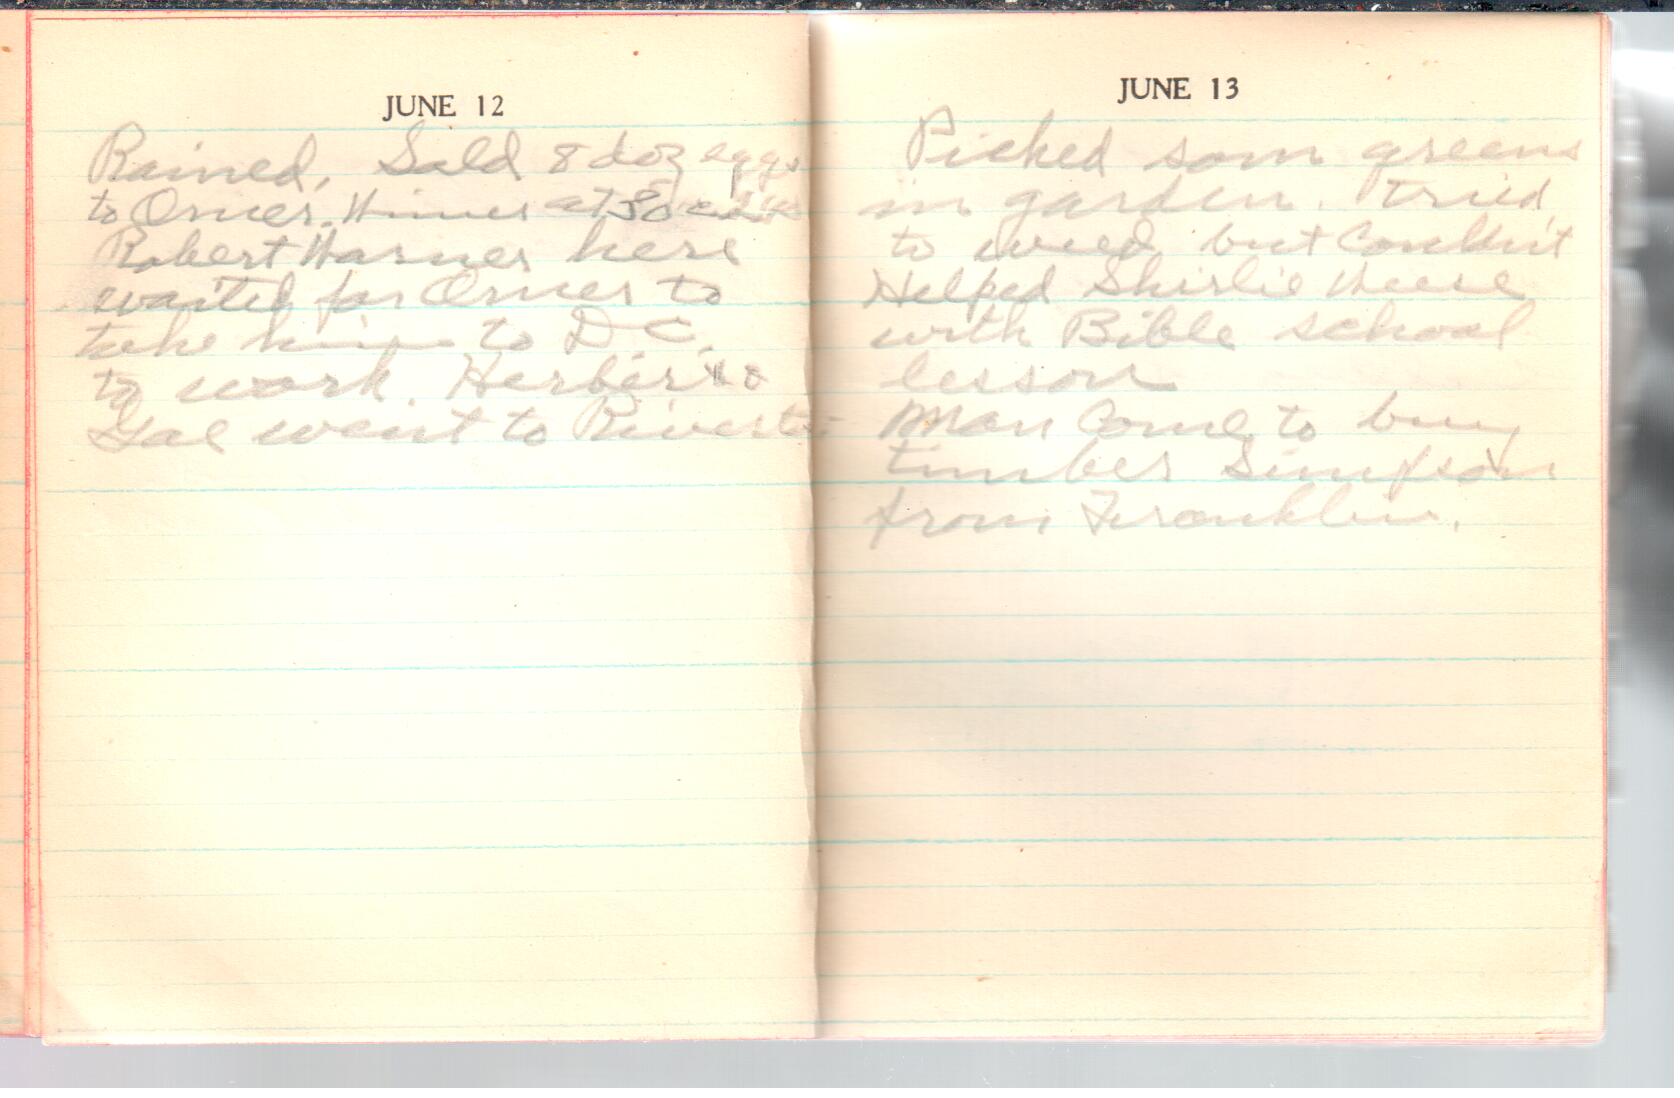 JUNE 12
Rained. Sold 8 doz eggs
to Omer. Hinner at 30
Robert Harner here
waited for Omer to
take him to D C.
to work. Herbert &
Gae went to Riverto
JUNE 13
Picked som greens
in garden. tried
to weed but Couldn't
Helped Shirlie Weese
with Bible school
lesson
Man Come to buy
timber Simpson
from Franklin.